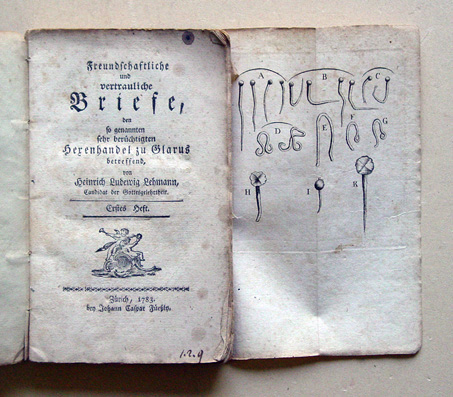 Freundschaftliche
und
vertrauliche
Briefe,
den
so genannten
sehr berüchtigten
Hexenhandel zu Glarus
betreffend,
von
Heinrich Ludewig Lehmann,
Candidat der Gottesgelehrtheit.
Erstes Heft.
Zürich, 1783.
bey Johann Caspar Füeßly.
1.2.9
A B C
D E F G
H I K